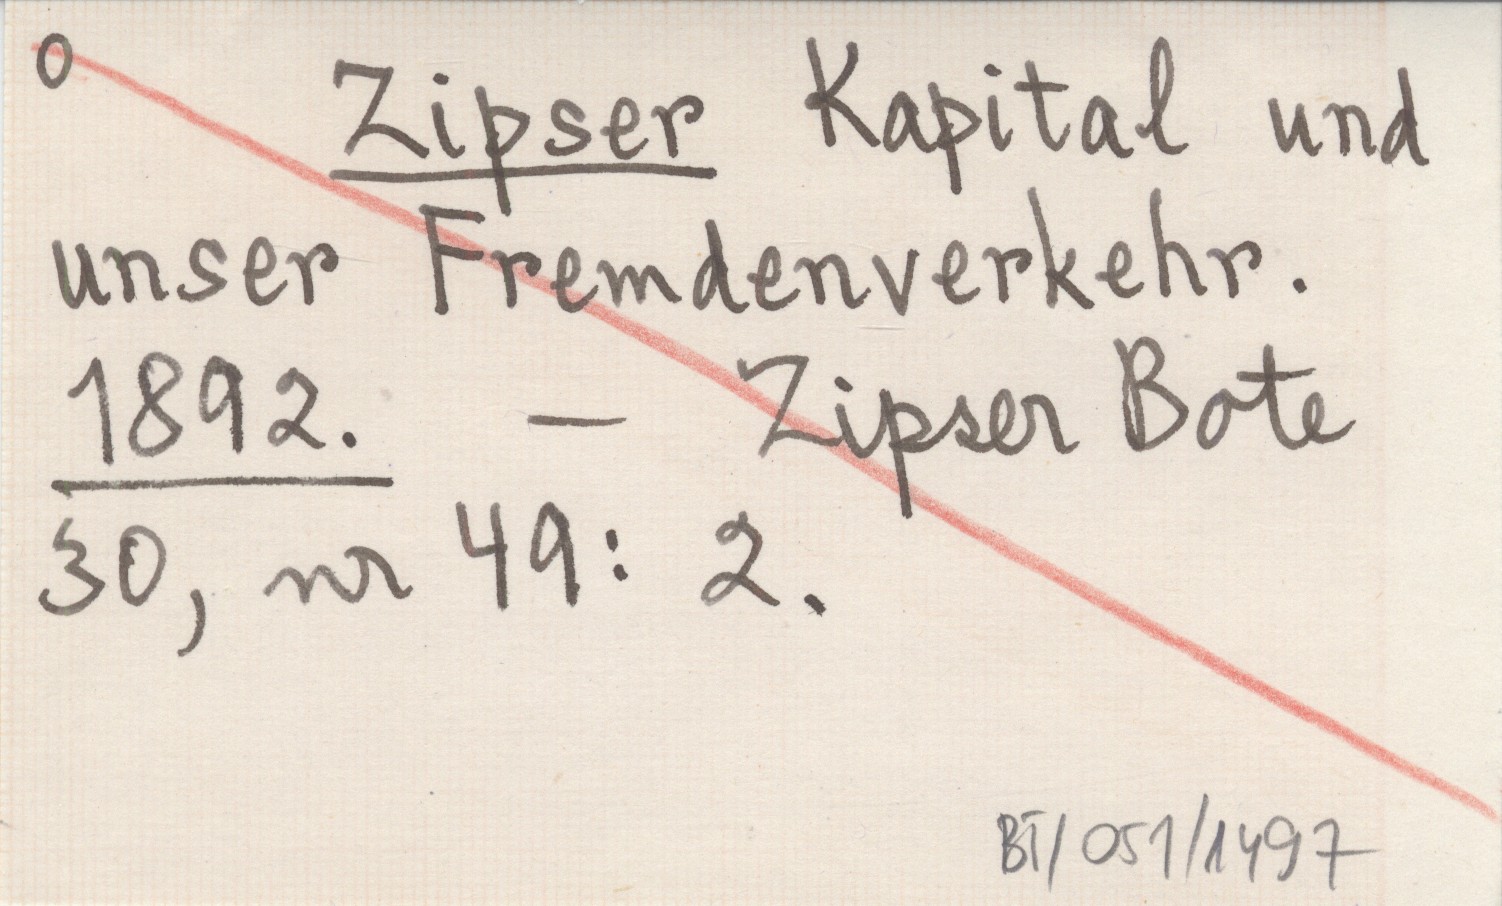 0 Zipser Kapital und
unser Fremdenverkehr.
1892. — Zipser Bote
30, nr 49: 2.
BT/051/1497